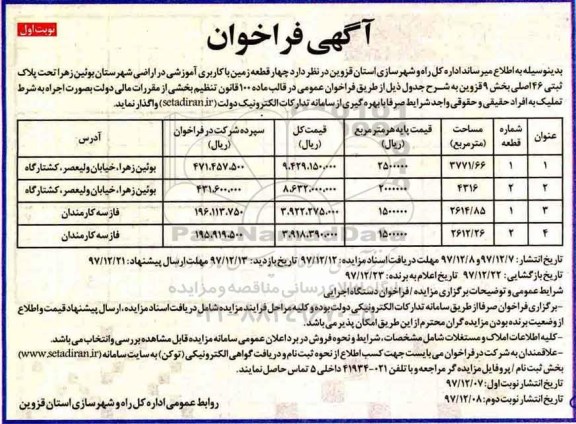 نوبت اول
آگهی فراخوان
بدینوسیله به اطلاع میرساند اداره کل راه و شهرسازی استان قزوین در نظر دارد چهار قطعه زمین با کاربری آموزشی در اراضی شهرستان بوئین زهرا تحت پلاک
ثبتی ۱۴۶ اصلی بخش ۹ قزوین به شرح جدول ذیل از طریق فراخوان عمومی در قالب ماده ۱۰۰ قانون تنظیم بخشی از مقررات مالی دولت بصورت اجاره به شرط
تملیک به افراد حقیقی و حقوقی واجد شرایط صرفا با بهره گیری از سامانه تدارکات الکترونیک دولت (setadiran.ir) واگذار نماید.
عنوان شماره قطعه مساحت (مترمربع) قیمت پایه هر متر مربع (ریال) قیمت کل (ریال) سپرده شرکت در فراخوان (ریال) آدرس
۱ ۱ ۳۷۷۱/۶۶ ۲۵۰۰۰۰۰ ۹.۴۲۹.۱۵۰.۰۰۰ ۴۷۱.۴۵۷.۵۰۰ بوئین زهرا، خیابان ولیعصر، کشتارگاه
۲ ۲ ۴۳۱۶ ۲۰۰۰۰۰۰ ۸.۶۳۲.۰۰۰.۰۰۰ ۴۳۱.۶۰۰.۰۰۰ بوئین زهرا، خیابان ولیعصر، کشتارگاه
۳ ۱ ۲۶۱۴/۸۵ ۱۵۰۰۰۰۰ ۳.۹۲۲.۲۷۵.۰۰۰ ۱۹۶.۱۱۳.۷۵۰ فاز سه کارمندان
۴ ۲ ۲۶۱۲/۲۶ ۱۵۰۰۰۰۰ ۳.۹۱۸.۳۹۰.۰۰۰ ۱۹۵.۹۱۹.۵۰۰ فاز سه کارمندان
تاریخ انتشار: ۹۷/۱۲/۷ و ۹۷/۱۲/۸ مهلت دریافت اسناد مزایده: ۹۷/۱۲/۱۲ تاریخ بازدید: ۹۷/۱۲/۱۳ مهلت ارسال پیشنهاد: ۹۷/۱۲/۲۱
تاریخ بازگشایی: ۹۷/۱۲/۲۲ تاریخ اعلام به برنده: ۹۷/۱۲/۲۳
شرایط عمومی و توضیحات برگزاری مزایده / فراخوان دستگاه اجرایی
-برگزاری فراخوان صرفا از طریق سامانه تدارکات الکترونیکی دولت بوده و کلیه مراحل فرایند مزایده شامل دریافت اسناد مزایده، ارسال پیشنهاد قیمت و اطلاع
از وضعیت برنده بودن مزایده گران محترم از این طریق امکان پذیر می باشد.
-کلیه اطلاعات املاک و مستغلات شامل مشخصات، شرایط و نحوه فروش در برد اعلان عمومی سامانه مزایده قابل مشاهده بررسی و انتخاب می باشد.
-علاقمندان به شرکت در فراخوان می بایست جهت کسب اطلاع از نحوه ثبت نام و دریافت گواهی الکترونیکی (توکن) به سایت سامانه (www.setadiran.ir)
بخش ثبت نام / پروفایل مزایده گر مراجعه و با تلفن ۰۲۱-۴۱۹۳۴ داخلی ۵ تماس حاصل نمایند.
تاریخ انتشار نوبت اول: ۹۷/۱۲/۰۷
تاریخ انتشار نوبت دوم: ۹۷/۱۲/۰۸
روابط عمومی اداره کل راه و شهرسازی استان قزوین